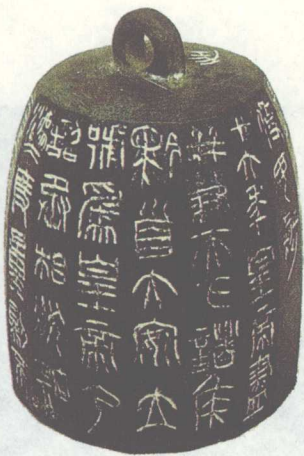 廿六年皇帝盡
并兼天下諸侯
黔首大安立
號為皇帝乃
詔丞相狀綰
灋度量則不壹